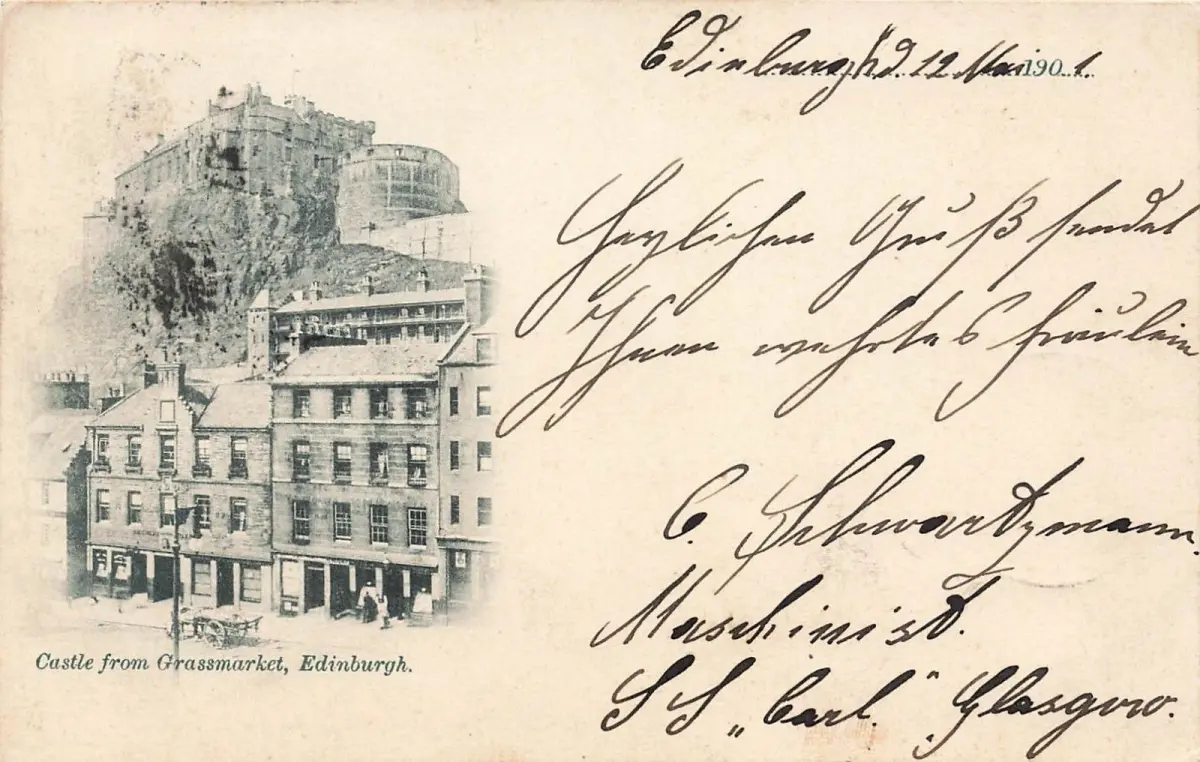 Edinburgh d. 12 Mai 1901.
Herzlichen Gruß sendet
Ihnen wehrtes Fräulein
C. Schwartzmann.
Maschinist.
SS „Carl." Glasgow.
Castle from Grassmarket, Edinburgh.